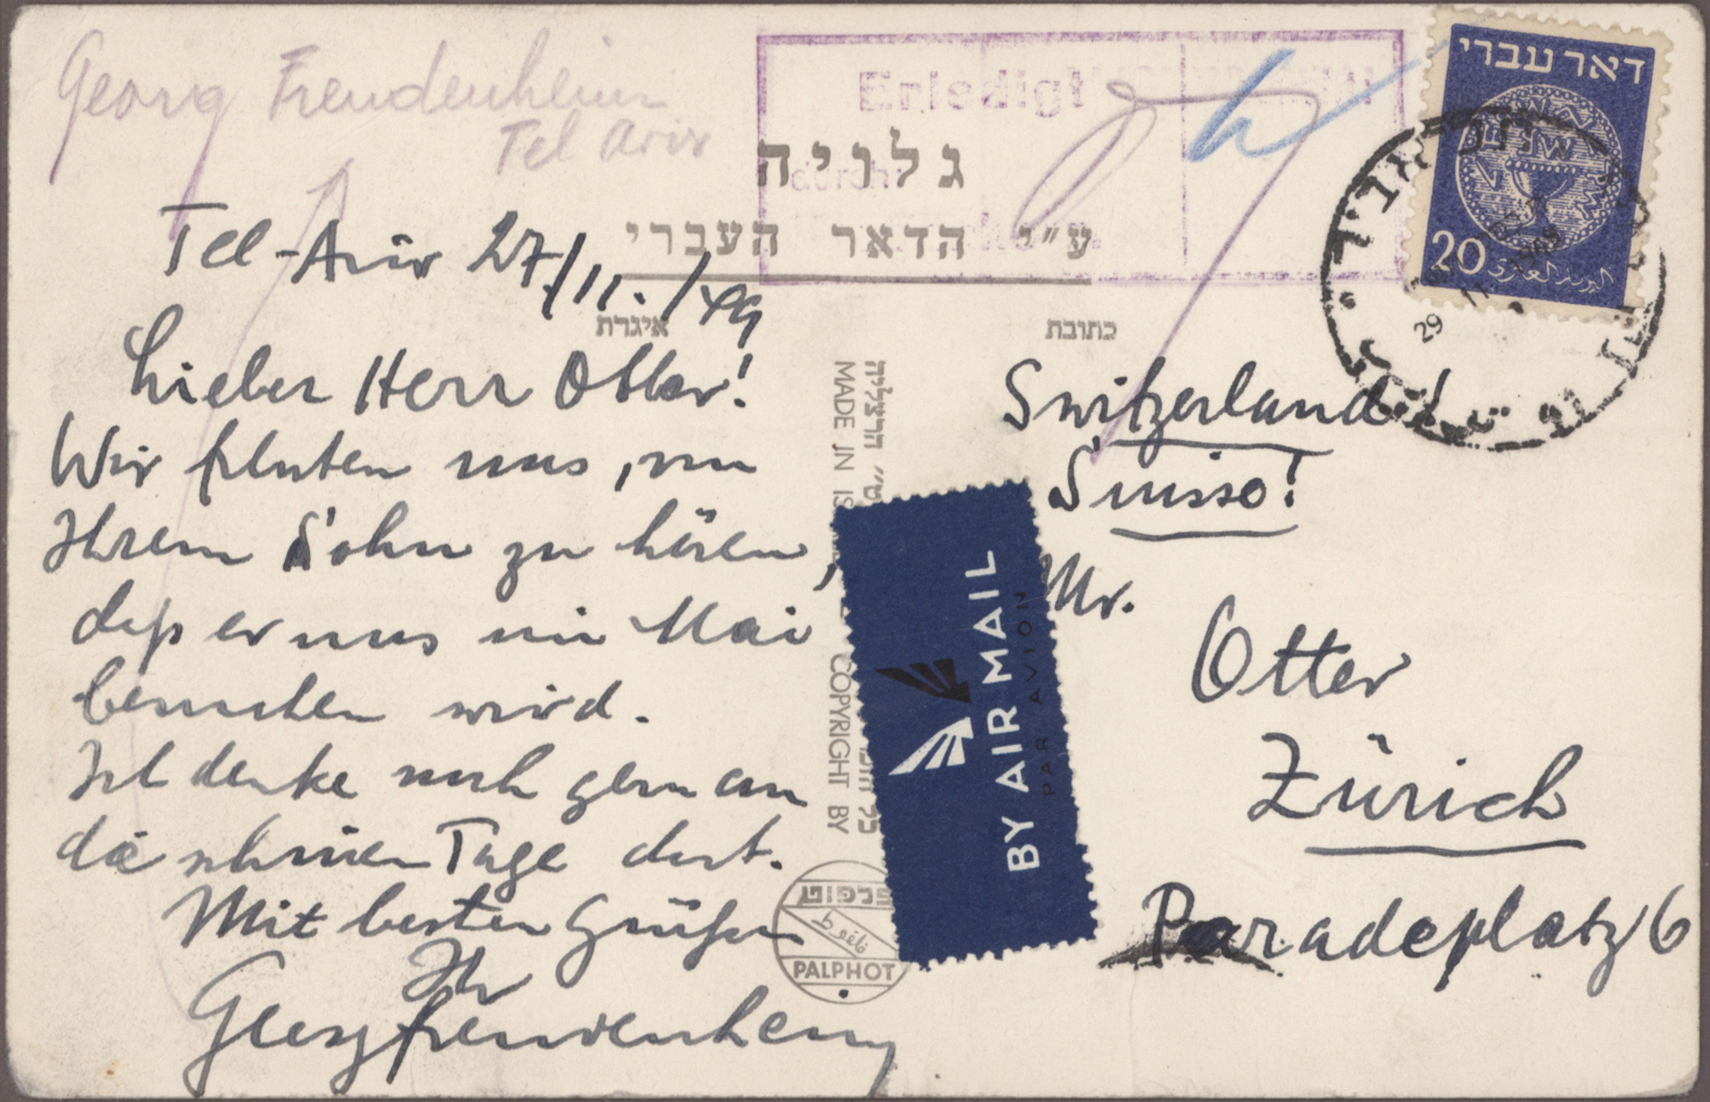 Georg Freudenheim
Tel Aviv
Erledigt
durch:
גלויה
ע״י הדאר העברי
דאר עברי
20
29
11
Tel-Aviv 27/11./49
איגרת
כתובת
Lieber Herr Otter!
Wir freuten uns, von
Ihrem Sohn zu hören,
daß er uns im Mai
besuchen wird.
Ich denke noch gern an
die schönen Tage dort.
Mit besten Grüßen
Ihr
Georg Freudenheim
הרצליה
MADE IN IS
COPYRIGHT BY
פלפוט
PALPHOT
BY AIR MAIL
PAR AVION
Switzerland!
Suisse!
Mr.
Otter
Zürich
Paradeplatz 6